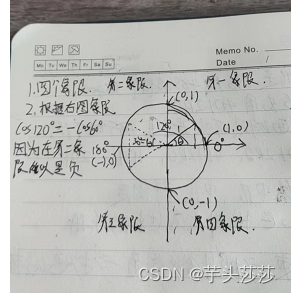 Memo No.
Mo Tu We Th Fr Sa Su
Date /
1.四个象限. 第二象限 第一象限
2.根据右图象限
(0,1)
cos120°=-cos60°
120°
因为在第二象 180°
(1,0)
0°
限所以是负 (-1,0)
(0,-1)
第三象限 第四象限
CSDN @芋头莎莎